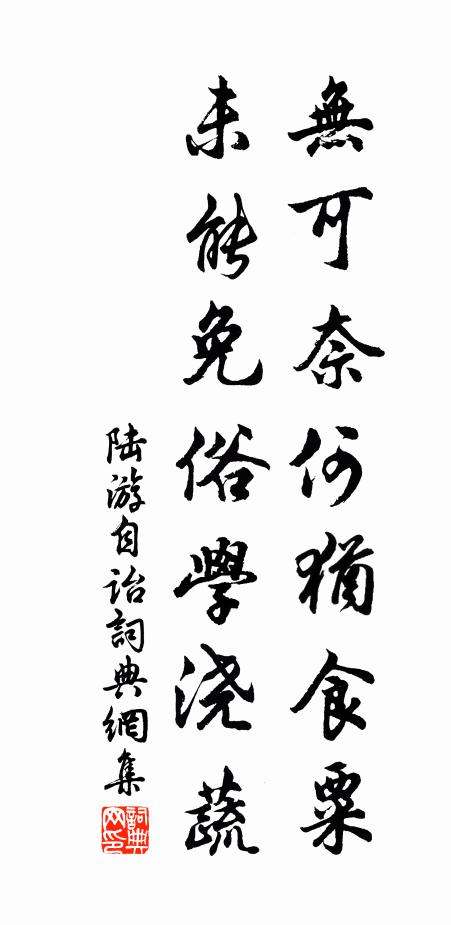 無可奈何猶食粟
未能免俗學浇蔬
陆游自詒詞典網集
詞典網印